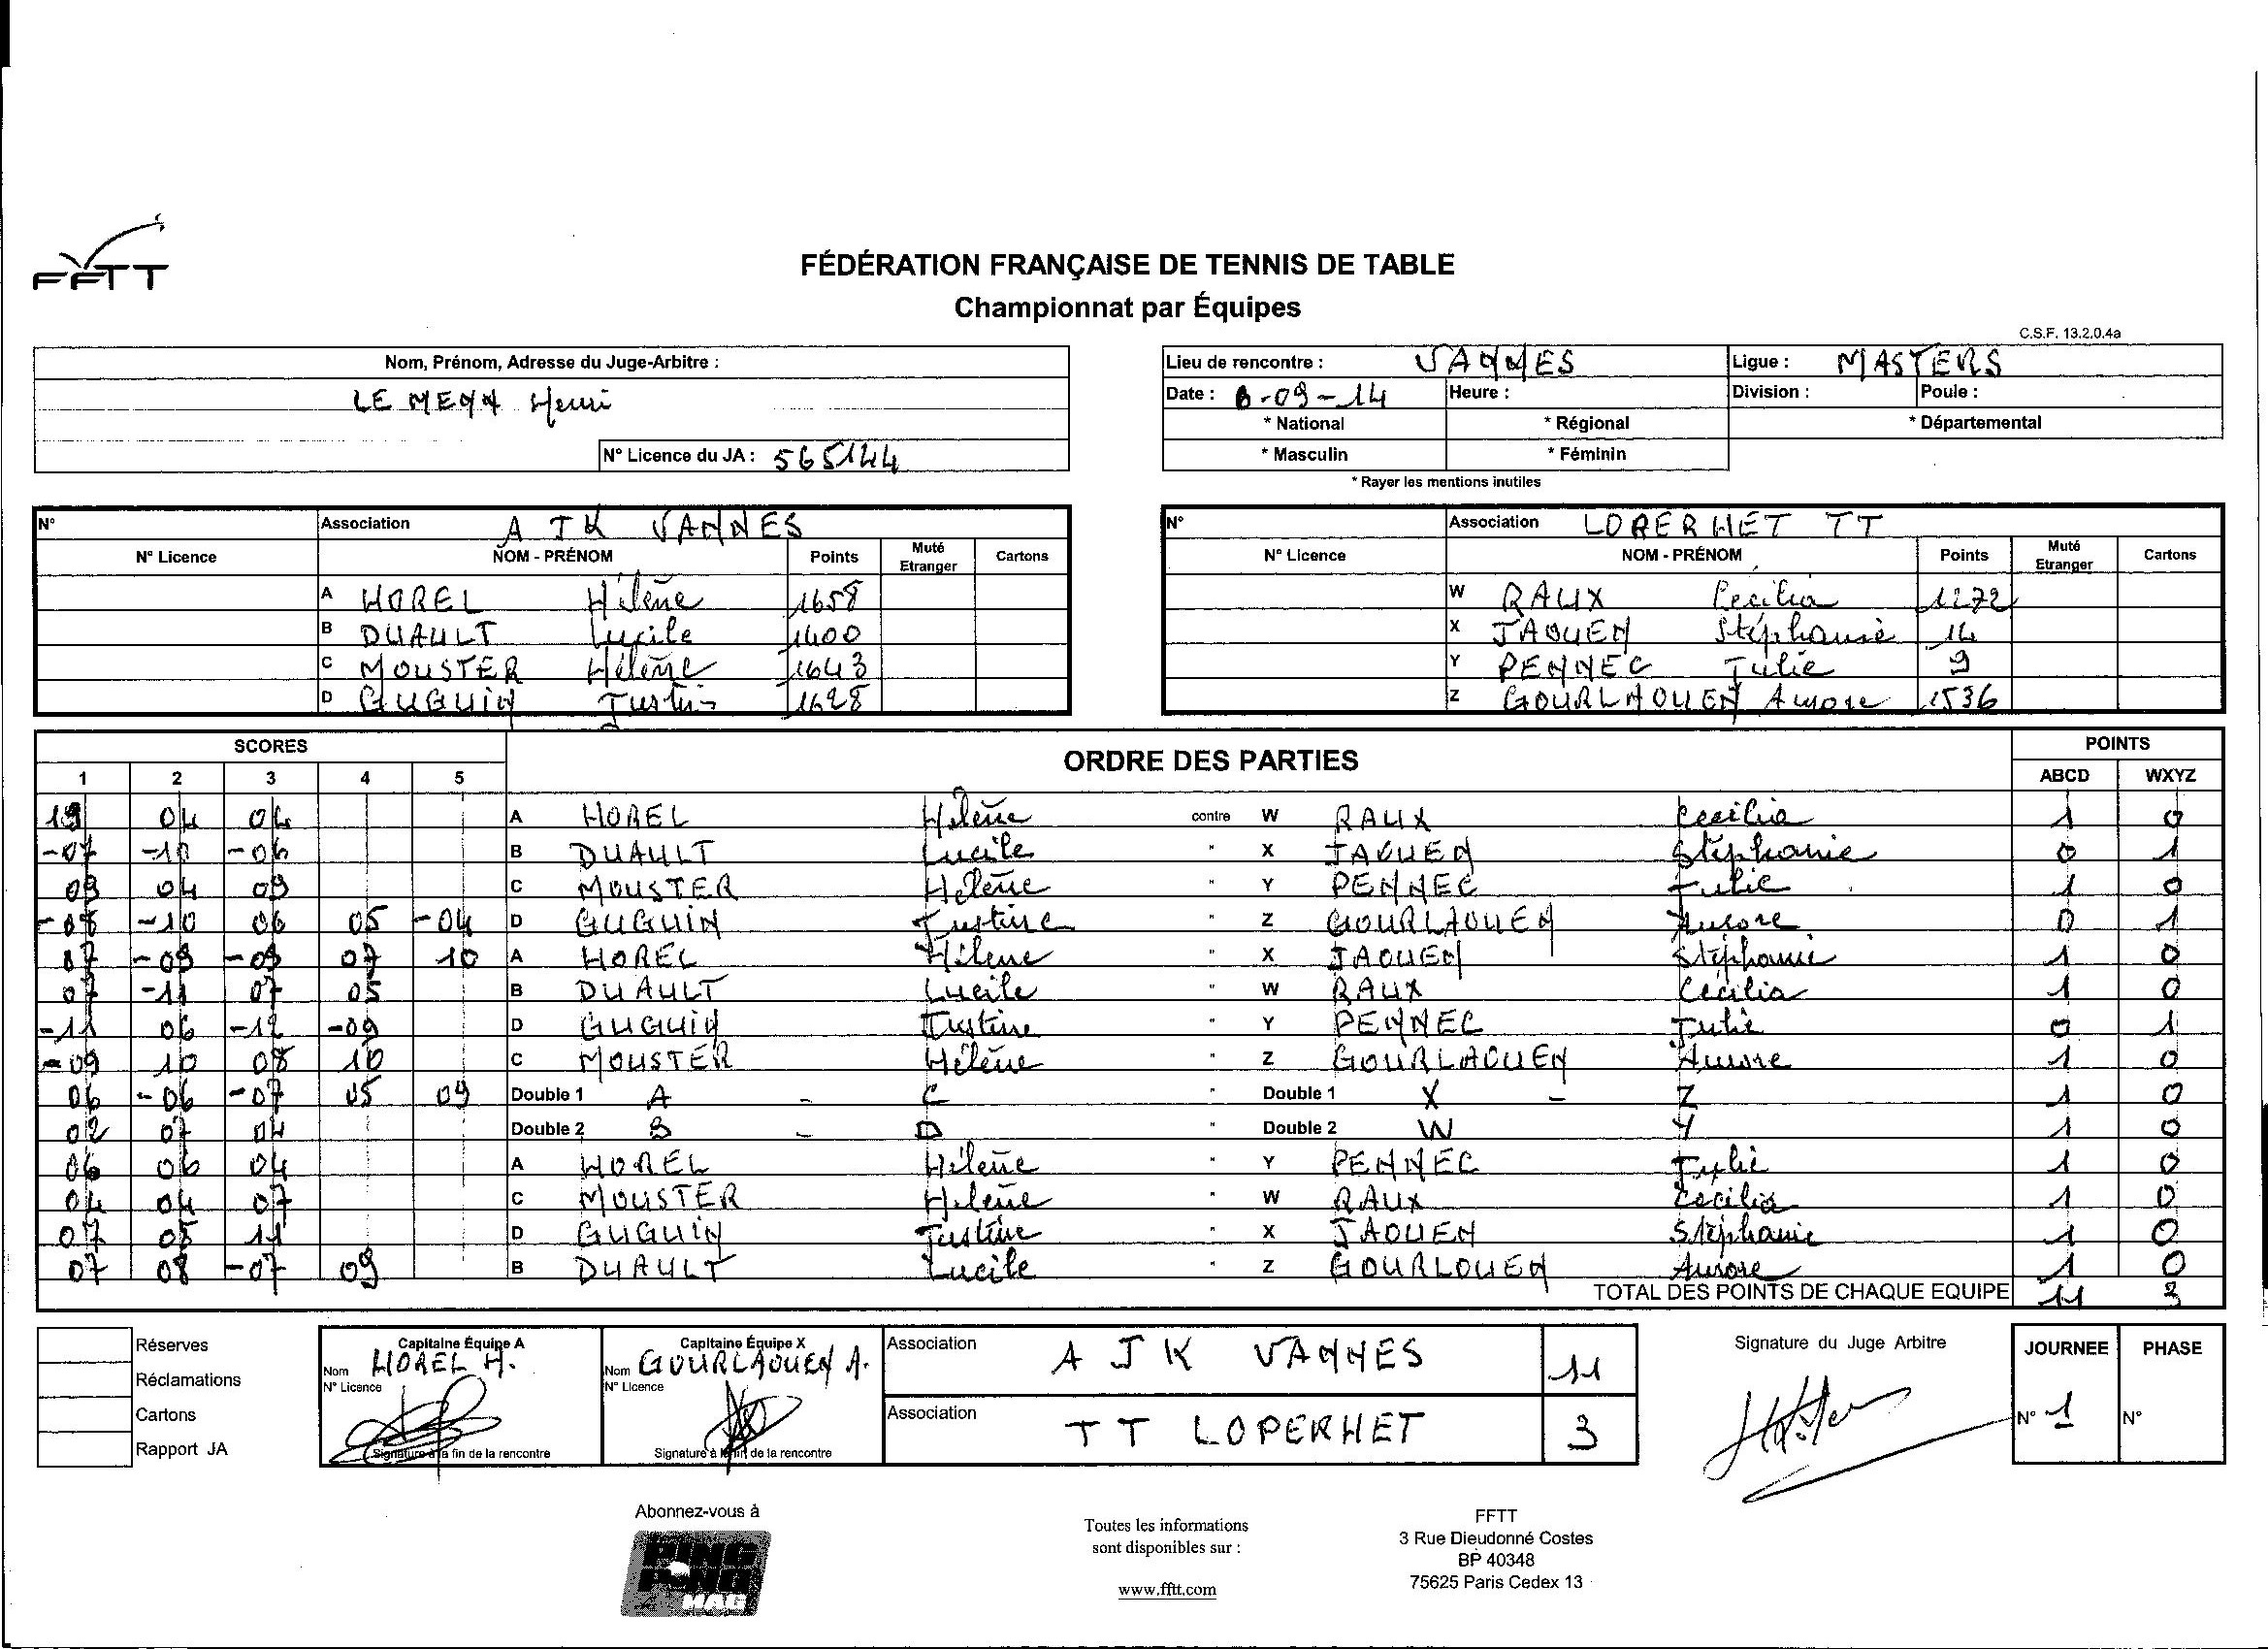 FFTT
FÉDÉRATION FRANÇAISE DE TENNIS DE TABLE
Championnat par Équipes
C.S.F. 13.2.0.4a
Nom, Prénom, Adresse du Juge-Arbitre :
LE MENN Henri
N° Licence du JA : 565144
Lieu de rencontre : VANNES Ligue : MASTERS
Date : 6-09-14 Heure : Division : Poule :
* National * Régional * Départemental
* Masculin * Féminin
* Rayer les mentions inutiles
N° Association AJK VANNES
N° Licence NOM - PRÉNOM Points Muté Etranger Cartons
A HOREL Hélène 1658
B DUAULT Lucile 1400
C MOUSTER Hélène 1643
D GUGUIN Justin 1628
N° Association LOPERHET TT
N° Licence NOM - PRÉNOM Points Muté Etranger Cartons
W RAUX Cecilia 1272
X JAOUEN Stéphanie 14
Y PENNEC Julie 9
Z GOURLAOUEN Aurore 1536
SCORES ORDRE DES PARTIES POINTS
1 2 3 4 5 ABCD WXYZ
19 04 04 A HOREL Hélène contre W RAUX Cecilia 1 0
-07 -10 -06 B DUAULT Lucile " X JAOUEN Stéphanie 0 1
09 04 09 C MOUSTER Hélène " Y PENNEC Julie 1 0
-08 -10 06 05 -04 D GUGUIN Justine " Z GOURLAOUEN Aurore 0 1
07 -09 -09 07 10 A HOREL Hélène " X JAOUEN Stéphanie 1 0
07 -11 07 05 B DUAULT Lucile " W RAUX Cécilia 1 0
-11 06 -12 -09 D GUGUIN Justine " Y PENNEC Julie 0 1
-09 10 08 10 C MOUSTER Hélène " Z GOURLAOUEN Aurore 1 0
06 -06 -07 05 09 Double 1 A - C " Double 1 X - Z 1 0
02 07 04 Double 2 B - D " Double 2 W Y 1 0
06 06 04 A HOREL Hélène " Y PENNEC Julie 1 0
04 04 07 C MOUSTER Hélène " W RAUX Cecilia 1 0
07 05 11 D GUGUIN Justine " X JAOUEN Stéphanie 1 0
07 08 -07 09 B DUAULT Lucile " Z GOURLOUEN Aurore 1 0
TOTAL DES POINTS DE CHAQUE EQUIPE 11 3
Réserves
Réclamations
Cartons
Rapport JA
Capitaine Équipe A
Nom HOREL H.
N° Licence
Signature à la fin de la rencontre
Capitaine Équipe X
Nom GOURLAOUEN A.
N° Licence
Signature à la fin de la rencontre
Association AJK VANNES 11
Association TT LOPERHET 3
Signature du Juge Arbitre
JOURNEE PHASE
N° 1 N°
Abonnez-vous à
PING PONG MAG
Toutes les informations
sont disponibles sur :
www.fftt.com
FFTT
3 Rue Dieudonné Costes
BP 40348
75625 Paris Cedex 13